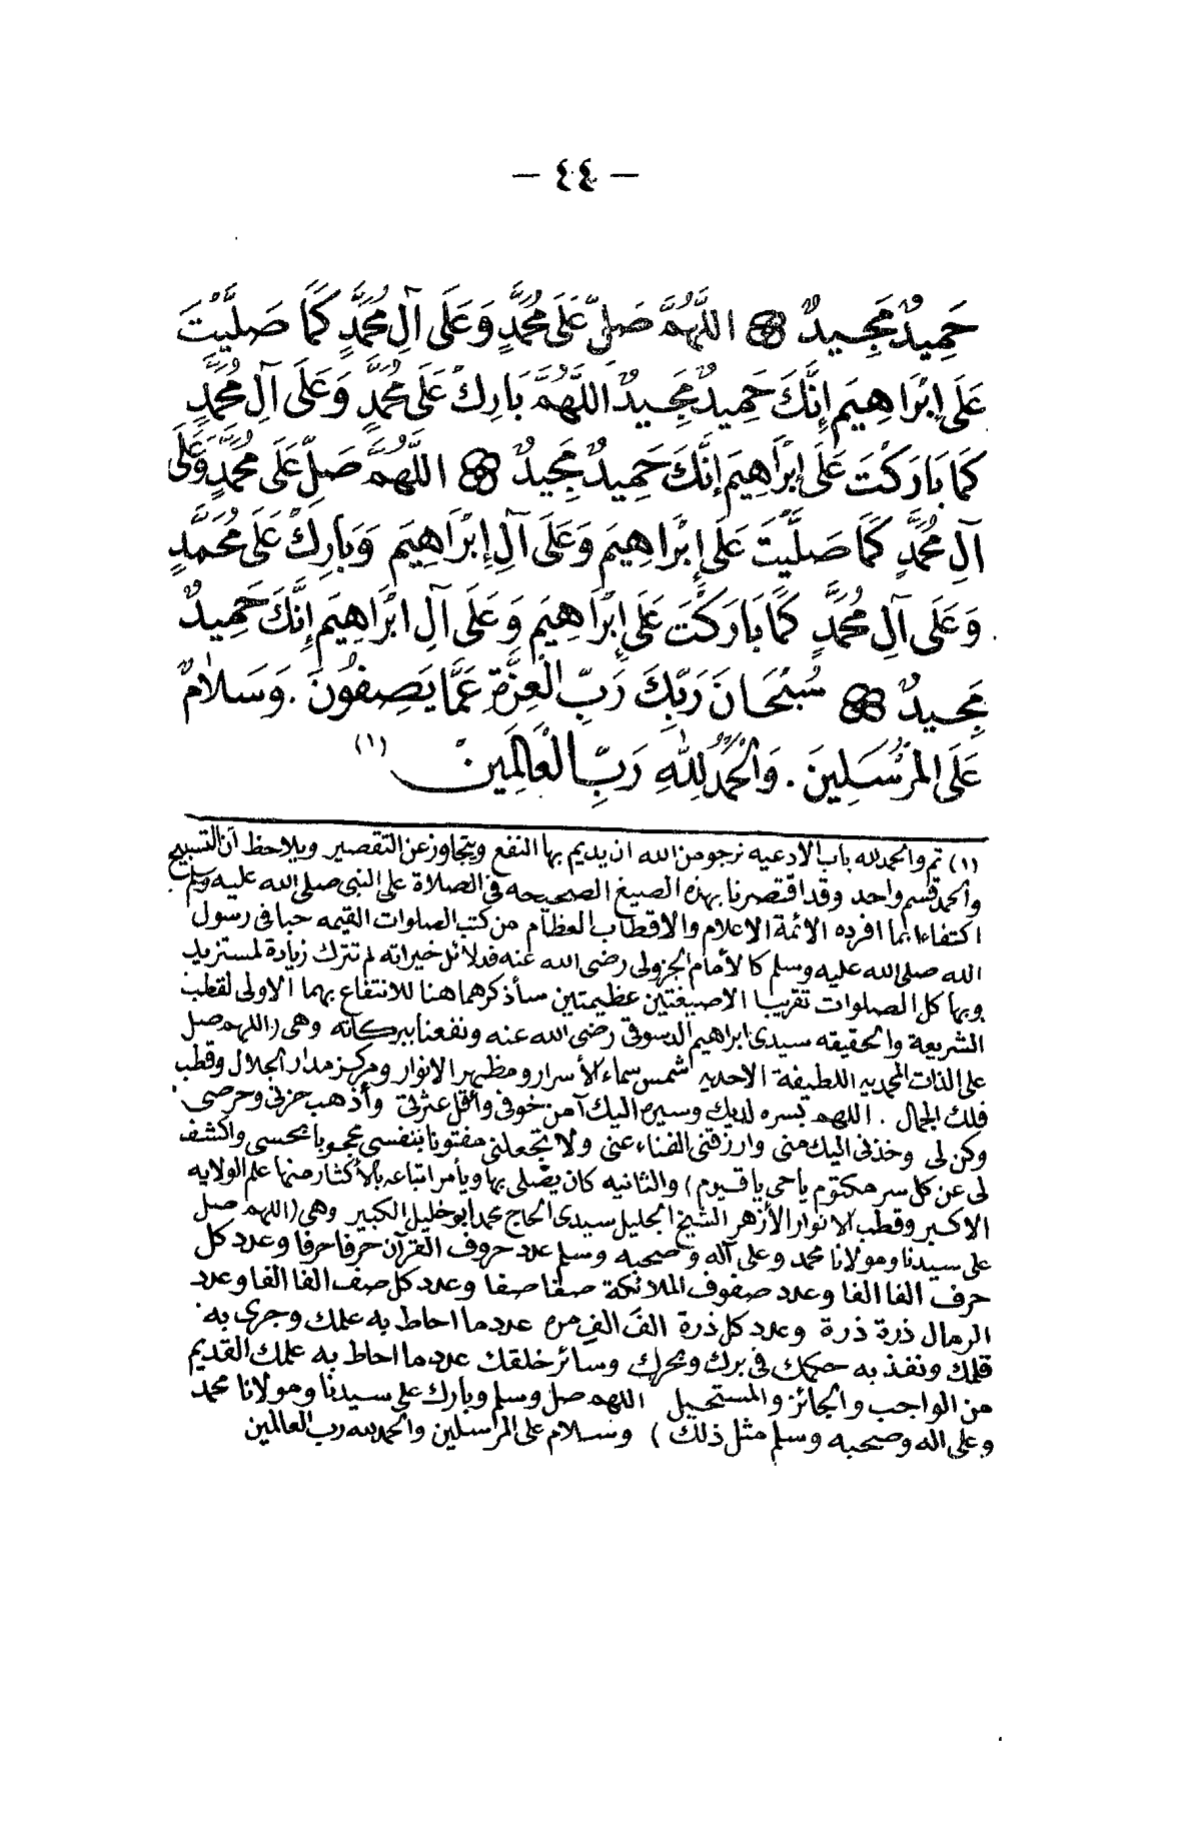 — ٤٤ —
حَمِيدٌ مَجِيدٌ اللَّهُمَّ صَلِّ عَلَى مُحَمَّدٍ وَعَلَى آلِ مُحَمَّدٍ كَمَا صَلَّيْتَ
عَلَى إِبْرَاهِيمَ إِنَّكَ حَمِيدٌ مَجِيدٌ اللَّهُمَّ بَارِكْ عَلَى مُحَمَّدٍ وَعَلَى آلِ مُحَمَّدٍ
كَمَا بَارَكْتَ عَلَى إِبْرَاهِيمَ إِنَّكَ حَمِيدٌ مَجِيدٌ اللَّهُمَّ صَلِّ عَلَى مُحَمَّدٍ وَعَلَى
آلِ مُحَمَّدٍ كَمَا صَلَّيْتَ عَلَى إِبْرَاهِيمَ وَعَلَى آلِ إِبْرَاهِيمَ وَبَارِكْ عَلَى مُحَمَّدٍ
وَعَلَى آلِ مُحَمَّدٍ كَمَا بَارَكْتَ عَلَى إِبْرَاهِيمَ وَعَلَى آلِ ابْرَاهِيمَ إِنَّكَ حَمِيدٌ
مَجِيدٌ سُبْحَانَ رَبِّكَ رَبِّ الْعِزَّةِ عَمَّا يَصِفُونَ . وَسَلَامٌ
عَلَى الْمُرْسَلِينَ . وَالْحَمْدُ لِلَّهِ رَبِّ الْعَالَمِينَ (١)
(١) تم والحمد لله باب الادعيه نرجو من الله ان يديم بها النفع ويتجاوز عن التقصير ويلاحظ أن التسبيح
والحمد قسم واحد وقد اقتصرنا بهذه الصيغ الصحيحه فى الصلاة على النبى صلى الله عليه وسلم .
اكتفاءا بما افرده الأئمة الاعلام والاقطاب العظام من كتب الصلوات القيمه حبا فى رسول
الله صلى الله عليه وسلم كالأمام الجزولى رضى الله عنه فدلائل خيراته لم تترك زيادة لمستزيد
وبها كل الصلوات تقريبا الا صيغتين عظيمتين سأذكرهما هنا للانتفاع بهما الاولى لقطب
الشريعة والحقيقه سيدى ابراهيم الدسوقى رضى الله عنه ونفعنا ببركاته وهى (اللهم صل
على الذات المحمديه اللطيفة الاحديه شمس سماء الأسرار ومظهر الانوار ومركز مدار الجلال وقطب
فلك الجمال . اللهم بسره لديك وسيره اليك آمن خوفى وأقل عثرتى وأذهب حزنى وحرصى .
وكن لى وخذنى اليك منى وارزقنى الفناء عنى ولا تجعلنى مفتونا بنفسى محجوبا بحسى واكشف
لى عن كل سر مكتوم ياحى ياقيوم ) والثانيه كان يصلى بها ويأمر اتباعه بالأكثار منها علم الولايه
الاكبر وقطب الانوار الأزهر الشيخ الجليل سيدى الحاج محمد ابو خليل الكبير وهى (اللهم صل
على سيدنا ومولانا محمد وعلى آله وصحبه وسلم عدد حروف القرآن حرفا حرفا وعدد كل
حرف الفا الفا وعدد صفوف الملائكة صفا صفا وعدد كل صف الفا الفا وعدد
الرمال ذرة ذرة وعدد كل ذرة الف الف مره عدد ما احاط به علمك وجرى به
قلمك ونفذ به حكمك فى برك وبحرك وسائر خلقك عدد ما احاط به علمك القديم
من الواجب والجائز والمستحيل اللهم صل وسلم وبارك على سيدنا ومولانا محمد
وعلى اله وصحبه وسلم مثل ذلك ) وسلام على المرسلين والحمد لله رب العالمين